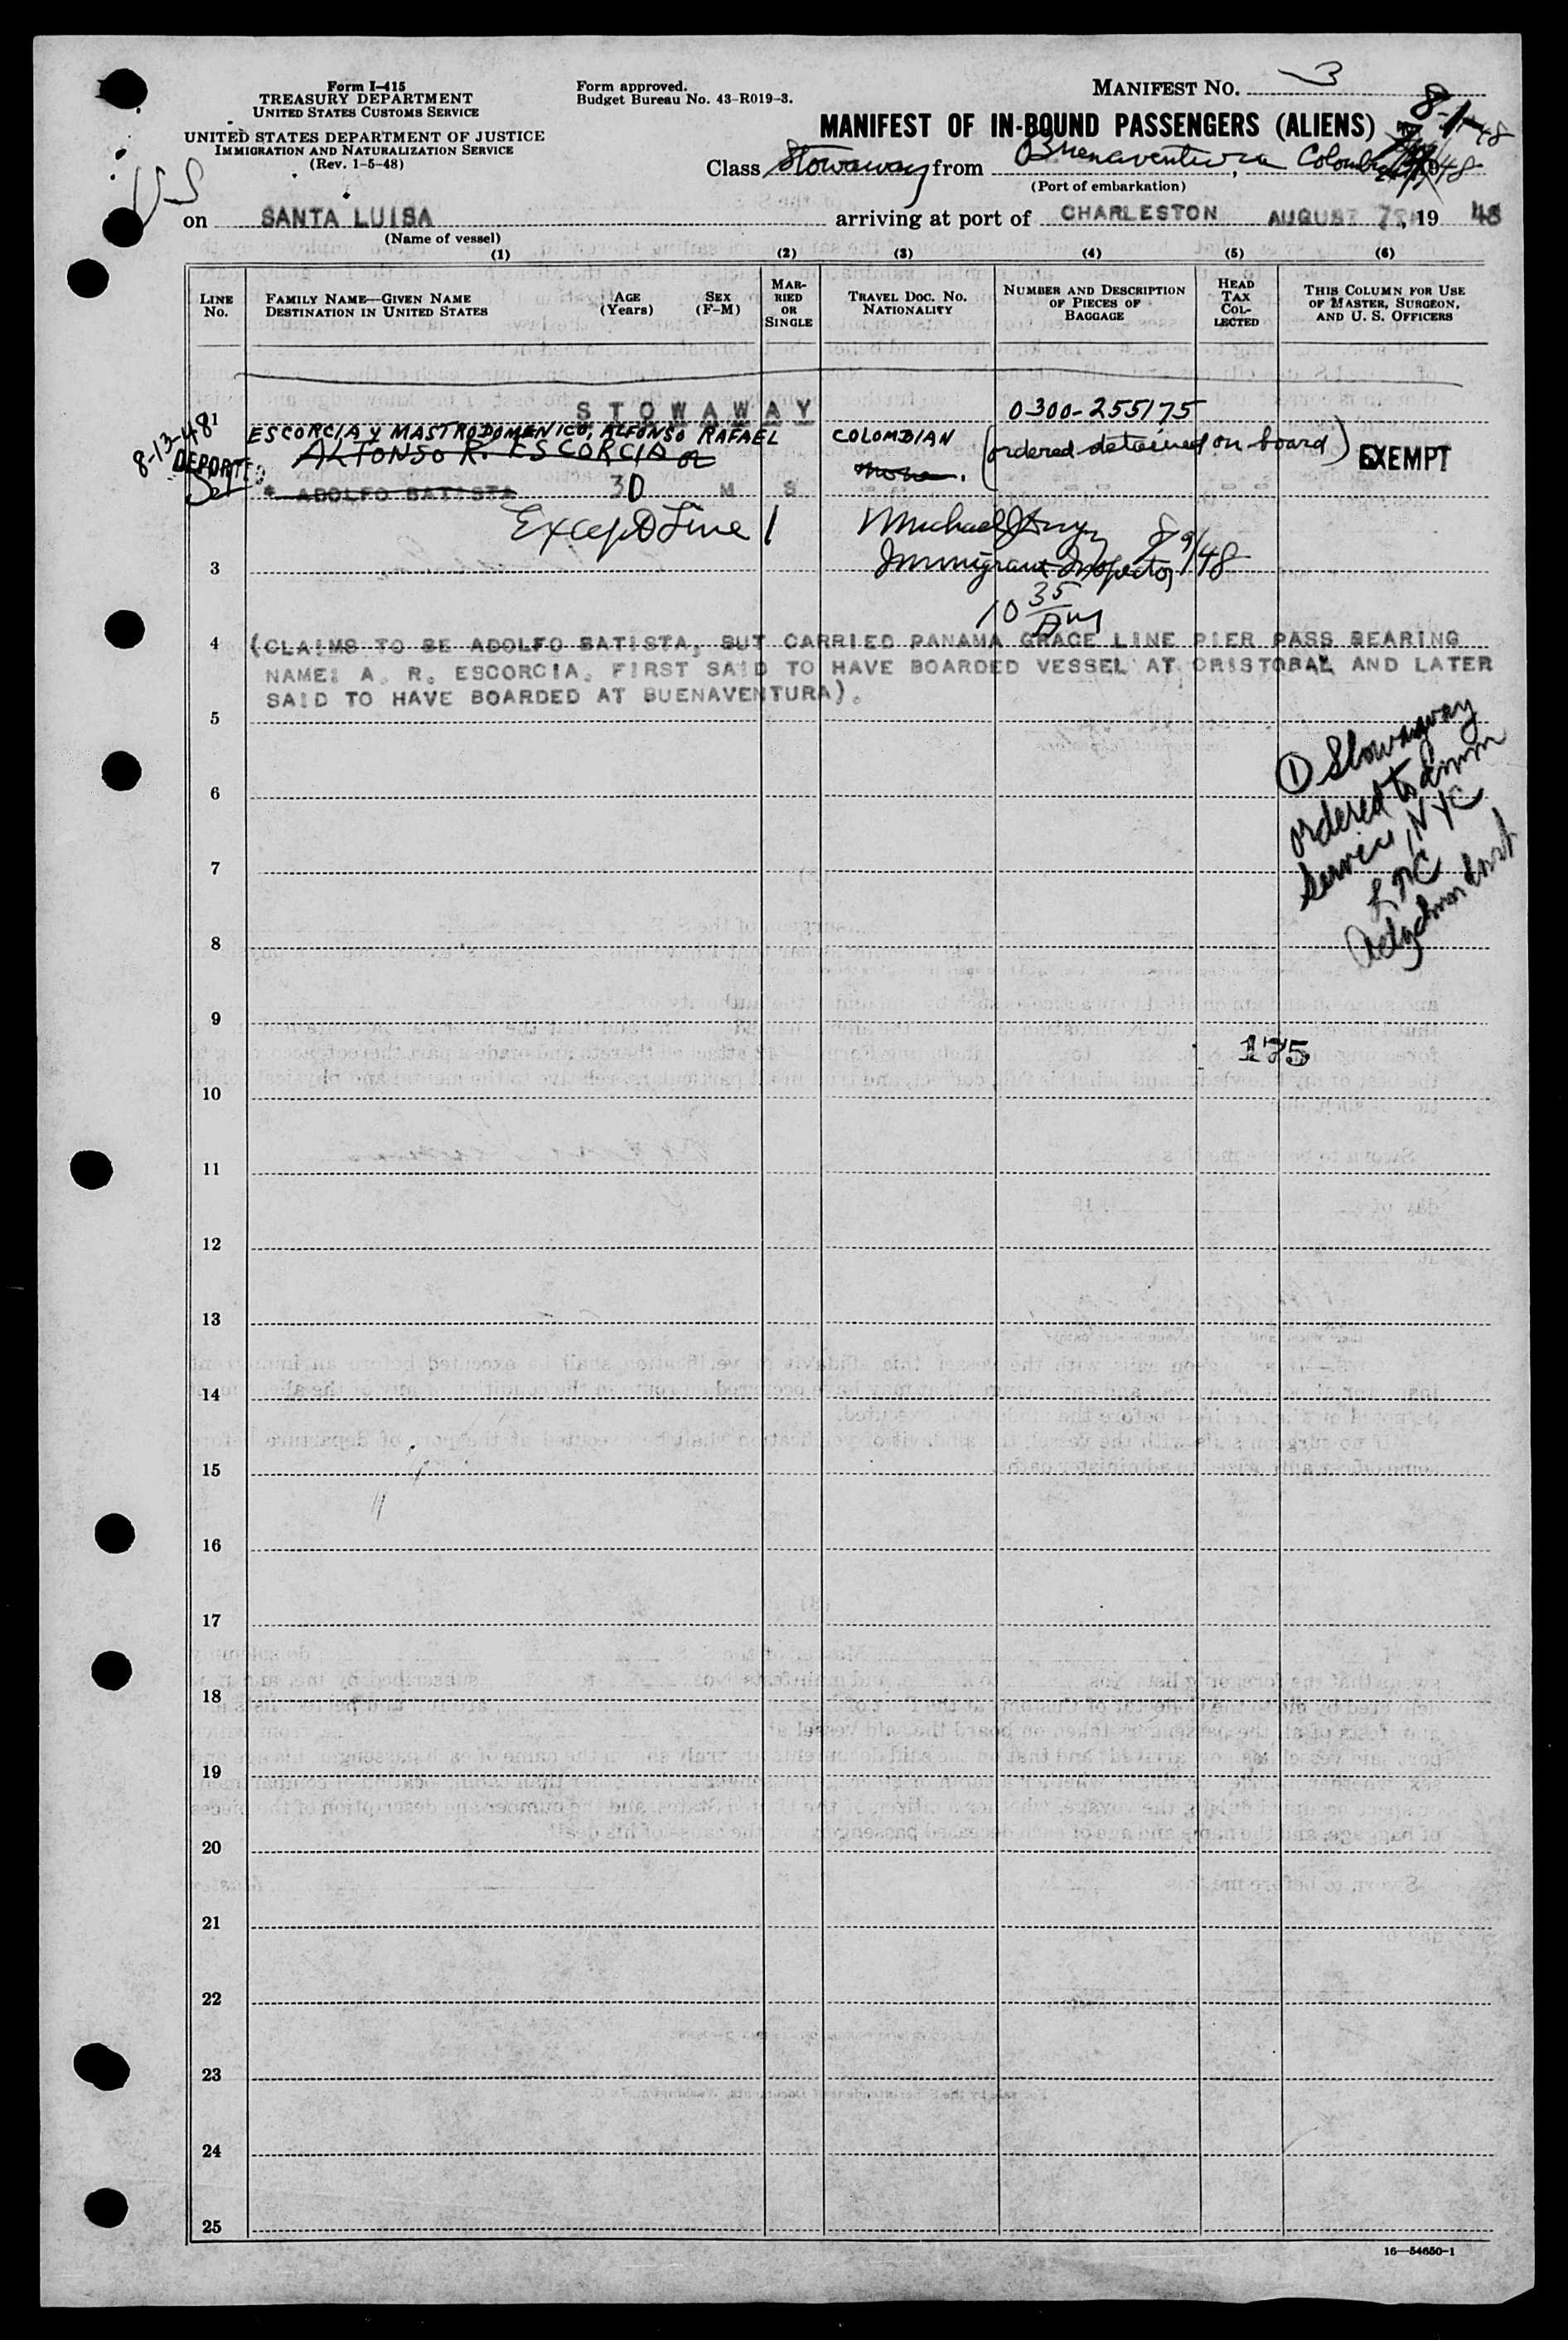 Form I-415
TREASURY DEPARTMENT
UNITED STATES CUSTOMS SERVICE
UNITED STATES DEPARTMENT OF JUSTICE
IMMIGRATION AND NATURALIZATION SERVICE
(Rev. 1-5-48)
Form approved.
Budget Bureau No. 43-R019-3.
MANIFEST NO. 3
MANIFEST OF IN-BOUND PASSENGERS (ALIENS)
8-1-48
Class Stowaway from Buenaventura, Colombia
(Port of embarkation)
US
on SANTA LUISA arriving at port of CHARLESTON AUGUST, 19 48
(Name of vessel)
(1) (2) (3) (4) (5) (6)
LINE No.
FAMILY NAME—GIVEN NAME
DESTINATION IN UNITED STATES
AGE (Years)
SEX (F-M)
MARRIED OR SINGLE
TRAVEL DOC. NO.
NATIONALITY
NUMBER AND DESCRIPTION OF PIECES OF BAGGAGE
HEAD TAX COLLECTED
THIS COLUMN FOR USE OF MASTER, SURGEON, AND U. S. OFFICERS
1 STOWAWAY 0300-255175
8-13-48
ESCORCIA y MASTRODOMENICO, ALFONSO RAFAEL COLOMBIAN (ordered detained on board) EXEMPT
DEPORTED
ALFONSO R. ESCORCIA or none.
* ADOLFO BATISTA 30 M S
Except Line 1
Immigrant Inspector 8/9/48
3
10 35 AM
4 (CLAIMS TO BE ADOLFO BATISTA, BUT CARRIED PANAMA GRACE LINE PIER PASS BEARING
NAME: A. R. ESCORCIA. FIRST SAID TO HAVE BOARDED VESSEL AT CRISTOBAL AND LATER
SAID TO HAVE BOARDED AT BUENAVENTURA).
5
① Stowaway
ordered to
Service, NYC
6
7
8
9
175
10
11
12
13
14
15
16
17
18
19
20
21
22
23
24
25
16—54650-1